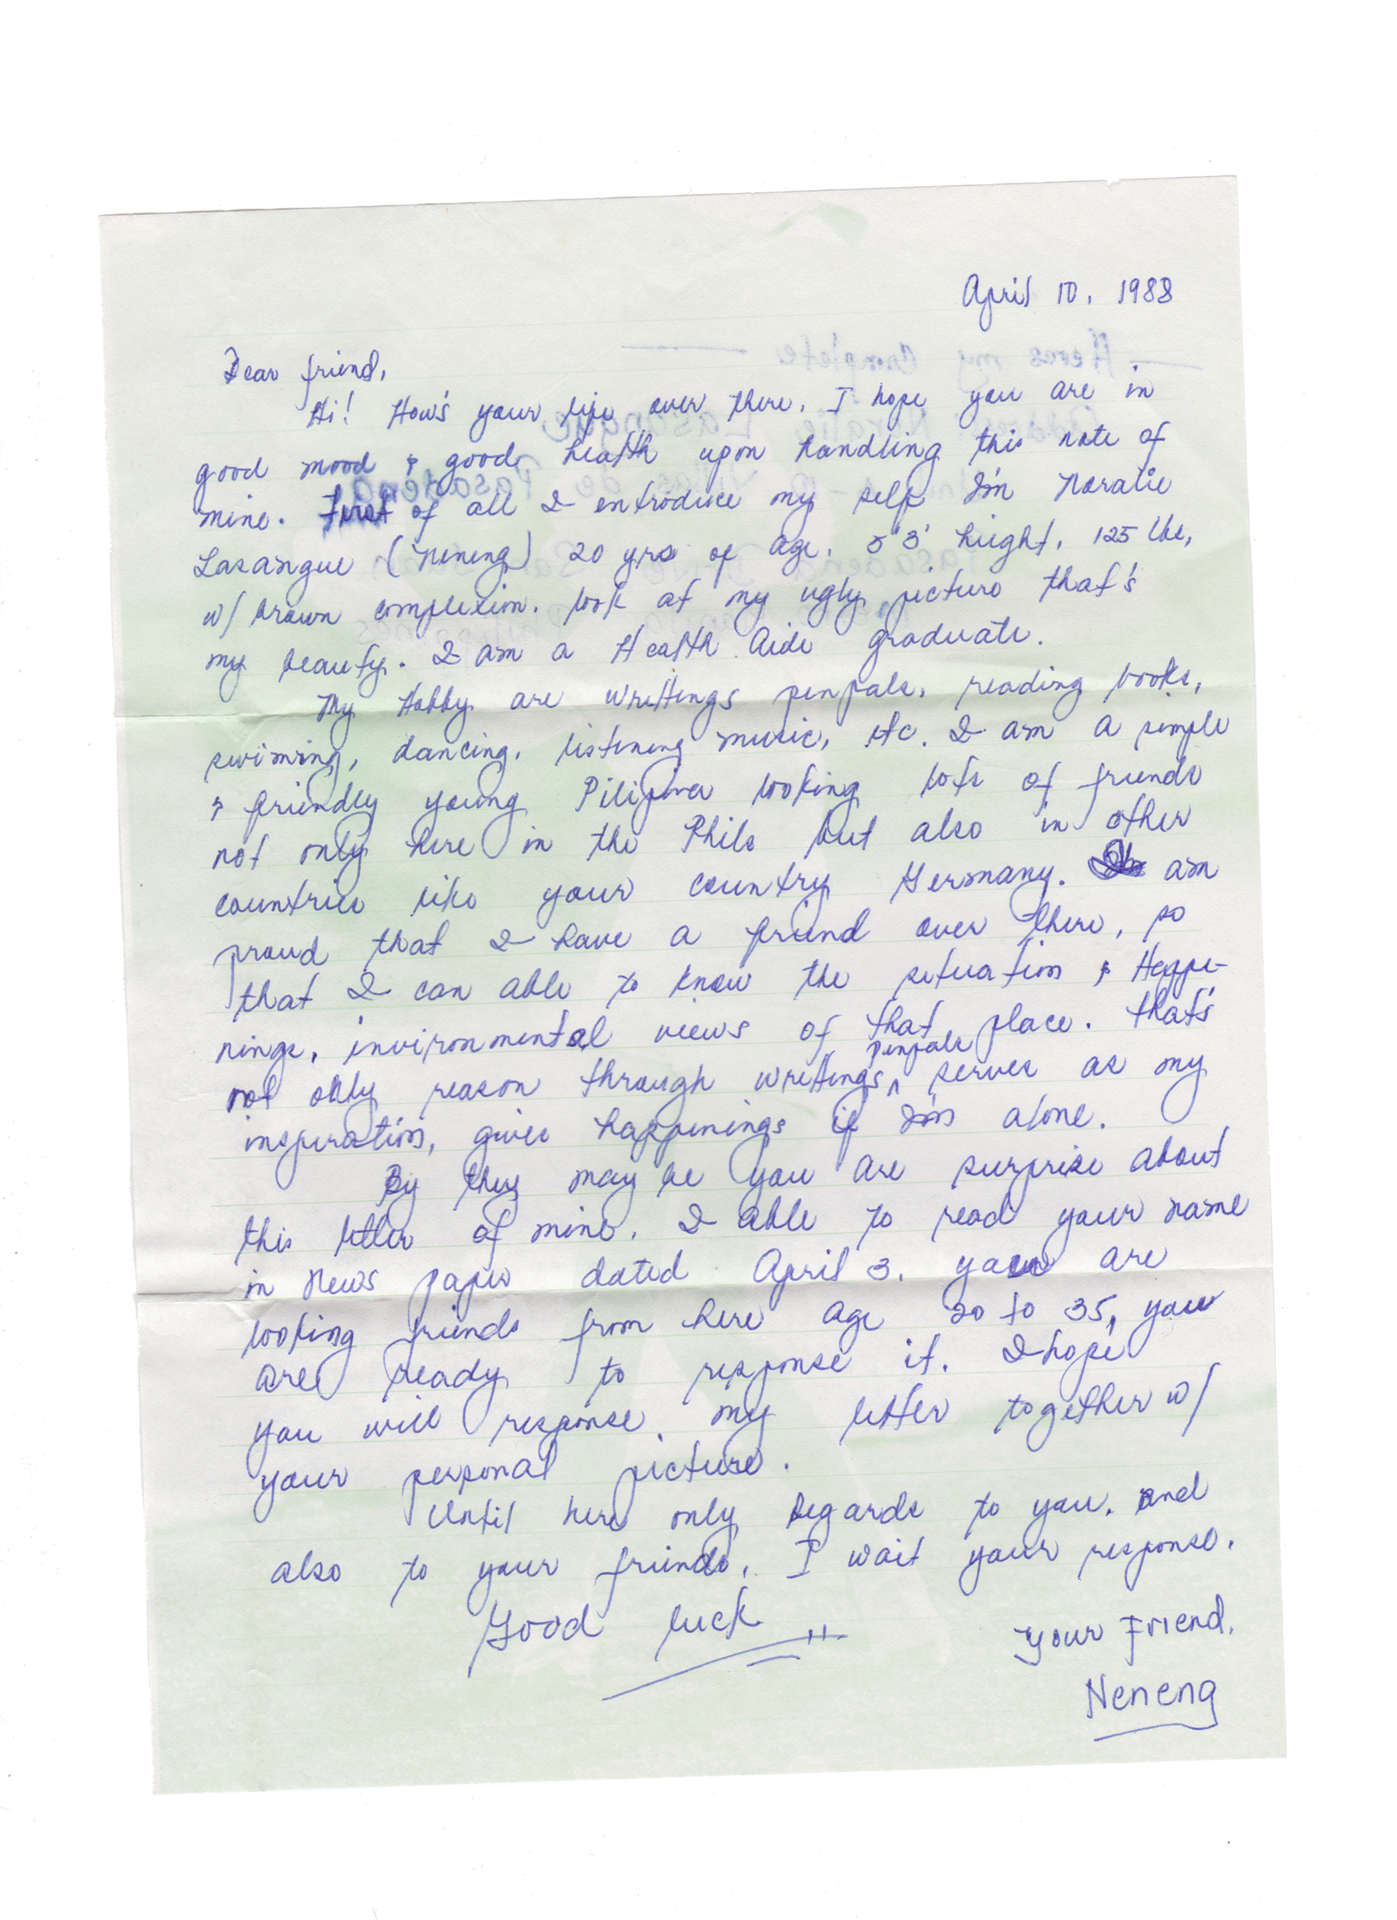 April 10, 1988
Dear friend,
Hi! How's your life over there. I hope you are in
good mood & good health upon handling this note of
mine. First of all I entroduce my self I'm Noralie
Lasangue (Neneng) 20 yrs of age. 5'3" hieght, 125 lbs,
w/ brown complexion. look at my ugly picture that's
my beauty. I am a Health Aide graduate.
My Hobby are writtings penpals, reading books,
swiming, dancing, listening music, etc. I am a simple
& friendly young Pilipina looking lots of friends
not only here in the Phils but also in other
countries like your country Germany. I am
proud that I have a friend over there, so
that I can able to know the situation & Happe-
nings, invironmental views of that place. that's
not only reason through writtings penpals serves as my
inspiration, gives happenings if I'm alone.
By they may be you are surprise about
this letter of mine. I able to read your name
in News paper dated April 3. you are
looking friends from here age 20 to 35, you
are ready to response it. I hope
you will response my letter together w/
your personal picture.
Until here only regards to you. and
also to your friends. I wait your response.
Good luck !!
Your Friend,
Neneng
Heres my Complete
Address: Noralie Lasangue
Villas de Pasadena
Pasadena Drive San Juan
Philippines